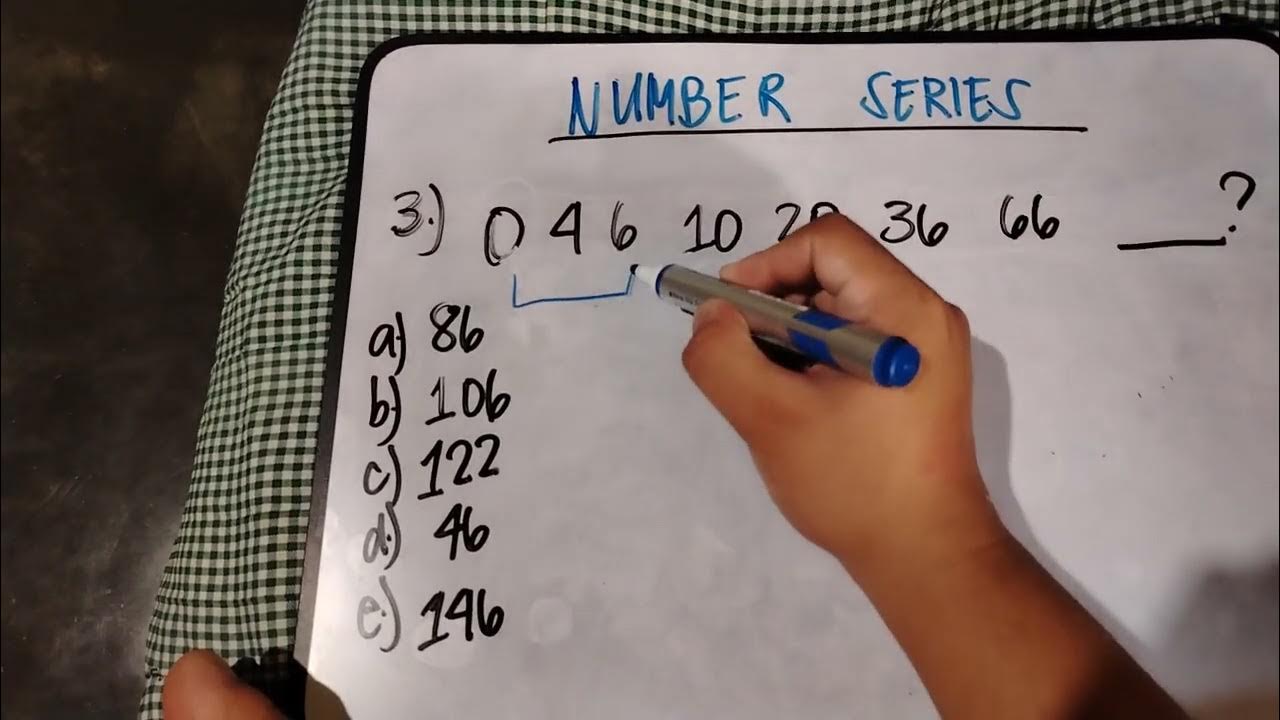 NUMBER SERIES
3.) 0 4 6 10 36 66 ___?
a.) 86
b.) 106
c.) 122
d.) 46
e.) 146